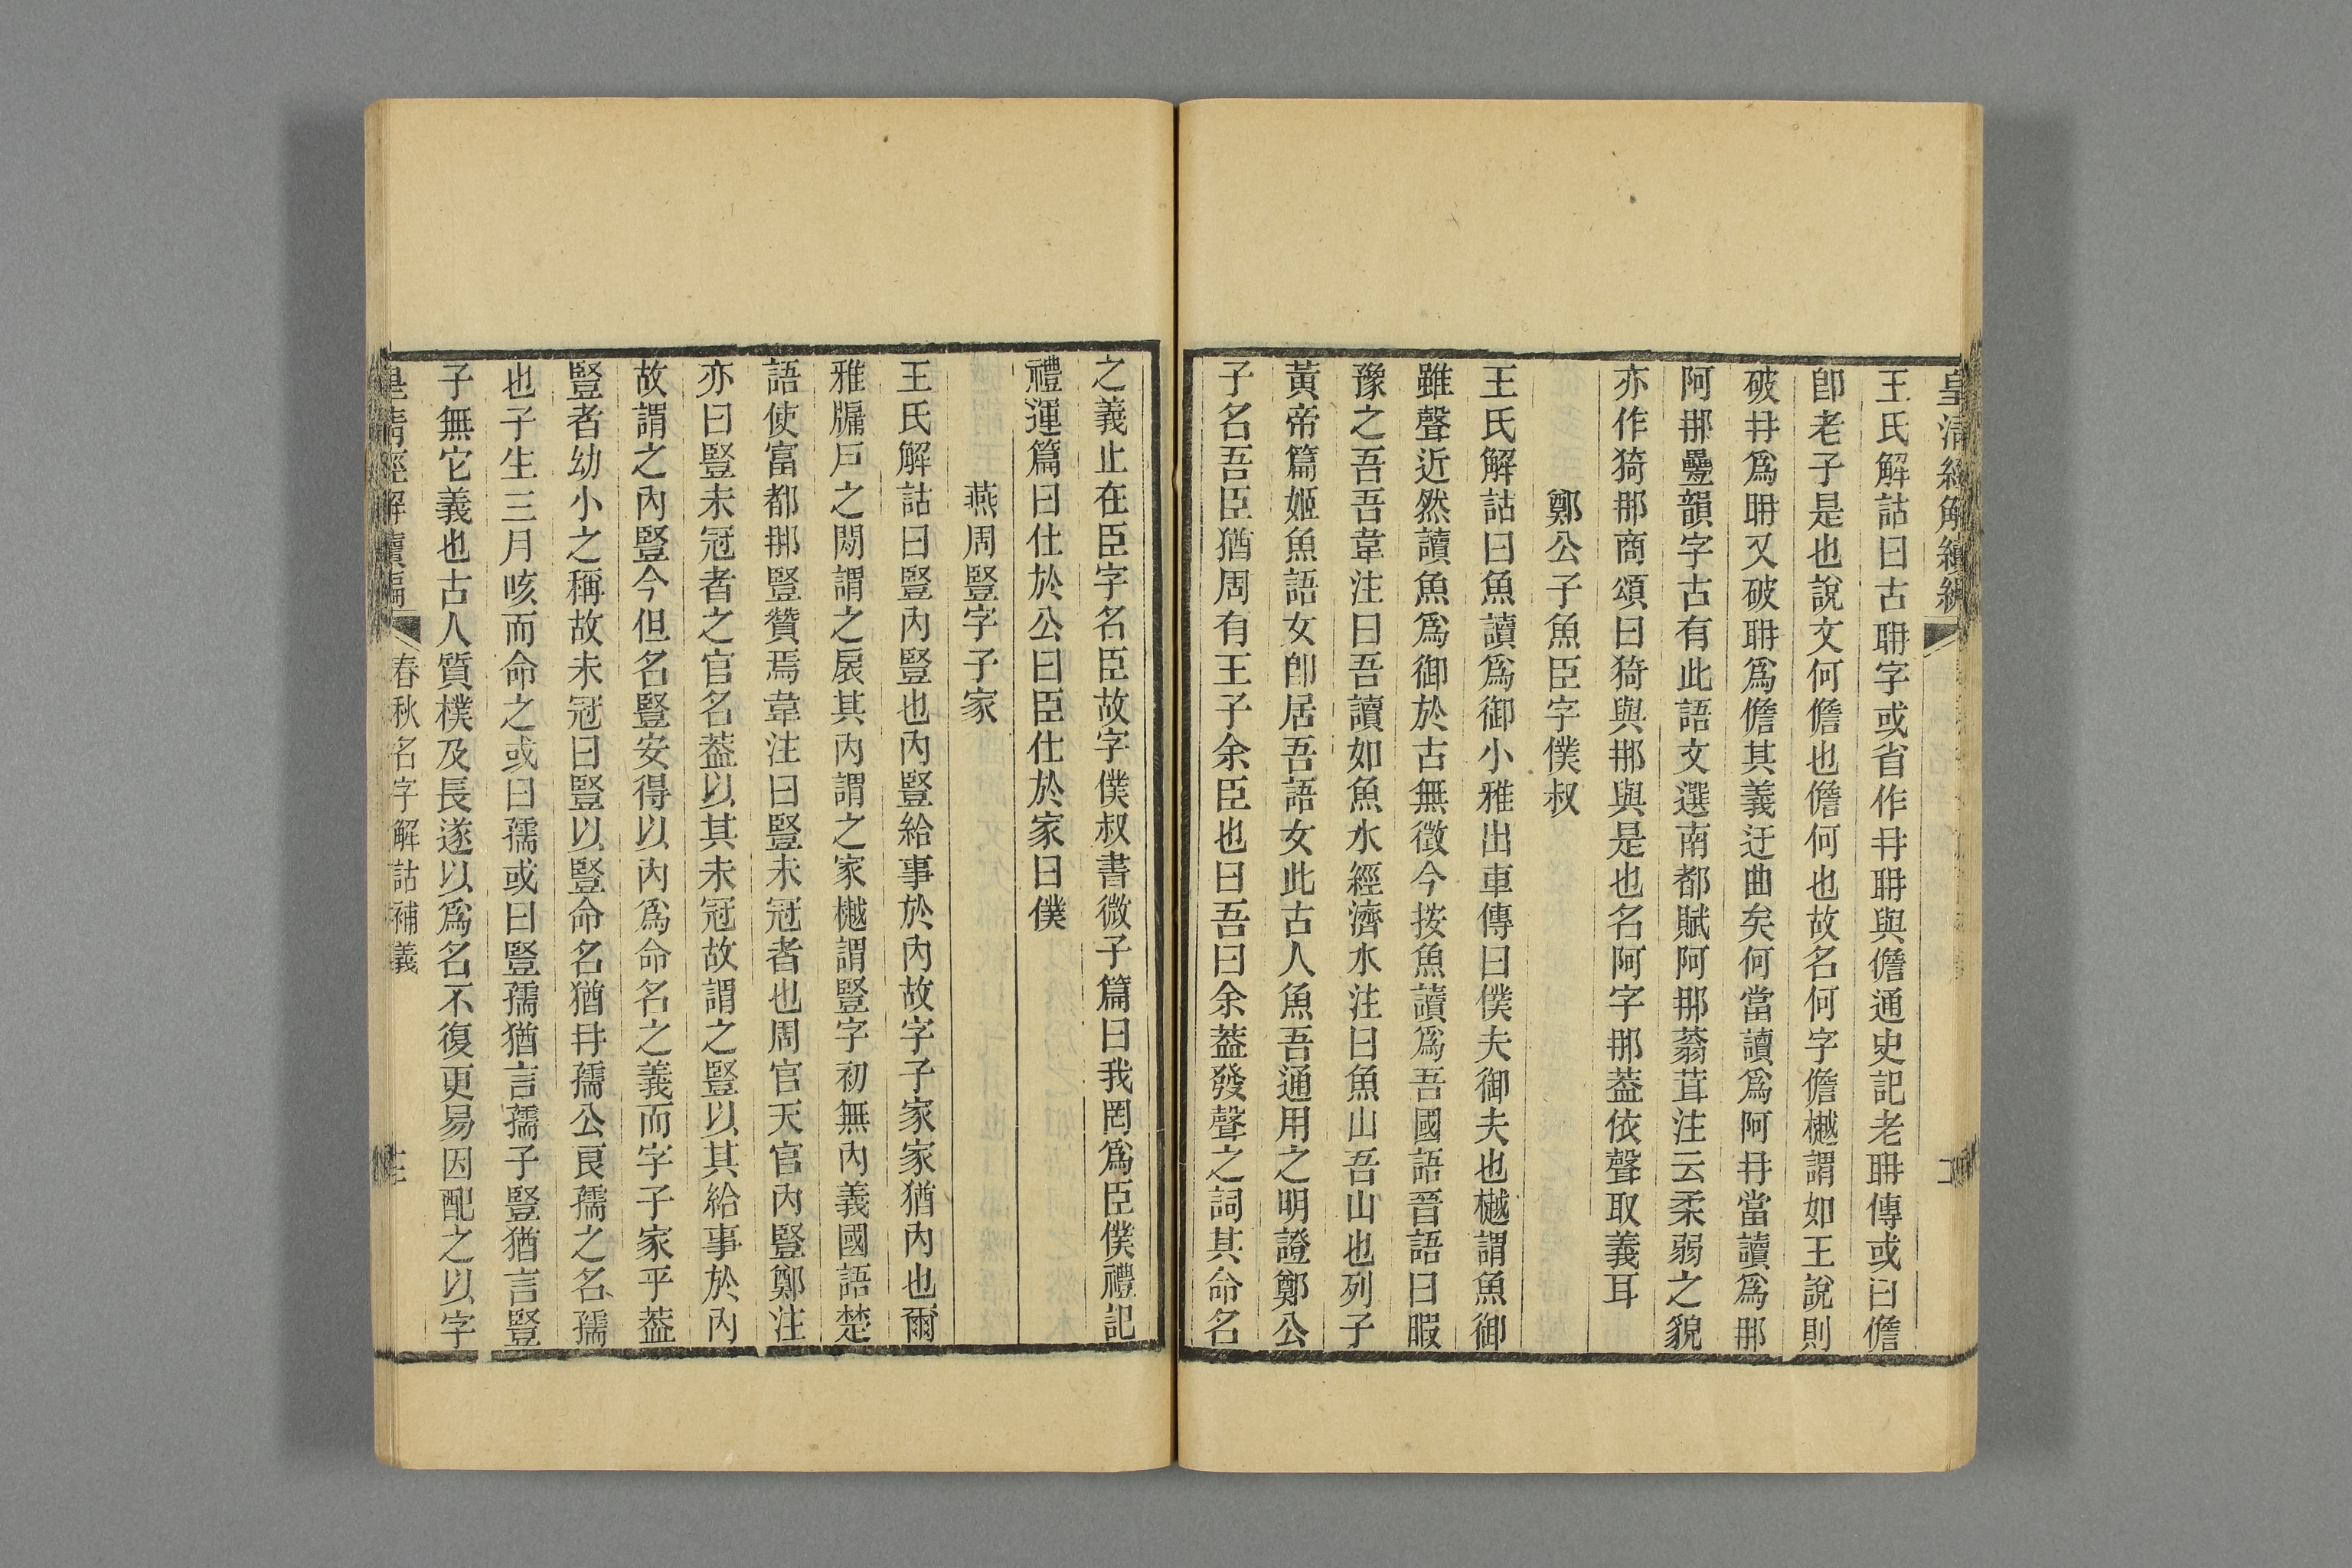 皇清經解續編
王氏解詁曰古聃字或省作冄聃與儋通史記老聃傳或曰儋
卽老子是也說文何儋也儋何也故名何字儋樾謂如王說則
破冄爲聃又破聃爲儋其義迂曲矣何當讀爲阿冄當讀爲那
阿那曡韻字古有此語文選南都賦阿那蓊茸注云柔弱之貌
亦作猗那商頌曰猗與那與是也名阿字那葢依聲取義耳
鄭公子魚臣字僕叔
王氏解詁曰魚讀爲御小雅出車傳曰僕夫御夫也樾謂魚御
雖聲近然讀魚爲御於古無徵今按魚讀爲吾國語晉語曰暇
豫之吾吾韋注曰吾讀如魚水經濟水注曰魚山吾山也列子
黃帝篇姬魚語女卽居吾語女此古人魚吾通用之明證鄭公
子名吾臣猶周有王子余臣也曰吾曰余葢發聲之詞其命名
之義止在臣字名臣故字僕叔書微子篇曰我罔爲臣僕禮記
禮運篇曰仕於公曰臣仕於家曰僕
燕周豎字子家
王氏解詁曰豎內豎也內豎給事於內故字子家家猶內也爾
雅牖戶之閒謂之扆其內謂之家樾謂豎字初無內義國語楚
語使富都那豎贊焉韋注曰豎未冠者也周官天官內豎鄭注
亦曰豎未冠者之官名葢以其未冠故謂之豎以其給事於內
故謂之內豎今但名豎安得以內爲命名之義而字子家乎葢
豎者幼小之稱故未冠曰豎以豎命名猶冄孺公良孺之名孺
也子生三月咳而命之或曰孺或曰豎孺猶言孺子豎猶言豎
子無它義也古人質樸及長遂以爲名不復更易因配之以字
皇清經解續編 春秋名字解詁補義